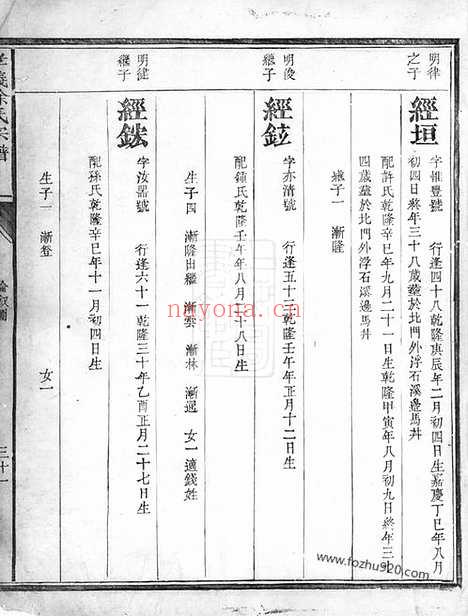 明律
之子
經垣
字惟豐號 行逢四十八乾隆庚辰年二月初四日生嘉慶丁巳年八月
初四日終年三十八歲葬於北門外浮石溪邊馬丼
配許氏乾隆辛巳年九月二十一日生乾隆甲寅年八月初九日終年三十
四歲葬於北門外浮石溪邊馬丼
繼子一 漸隆
明俊
繼子
經鉉
字亦清號 行逢五十三乾隆壬午年正月十二日生
配鍾氏乾隆壬午年八月二十八日生
生子四 漸隆出繼 漸雲 漸林 漸遜 女一適錢姓
明健
繼子
經鈜
字汝器號 行逢六十一乾隆三十年乙酉正月二十七日生
配孫氏乾隆辛巳年十一月初四日生
生子一 漸登 女一
余氏宗譜
三十一
nayona.cn
www.fozhu920.com